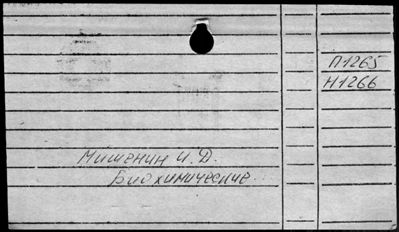 П1265
Н1266
Мишенин И.Д.
Биохимические